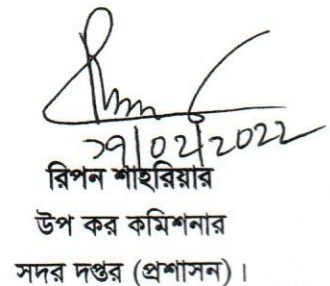 ২৭/02/2022
রিপন শাহরিয়ার
উপ কর কমিশনার
সদর দপ্তর (প্রশাসন)।